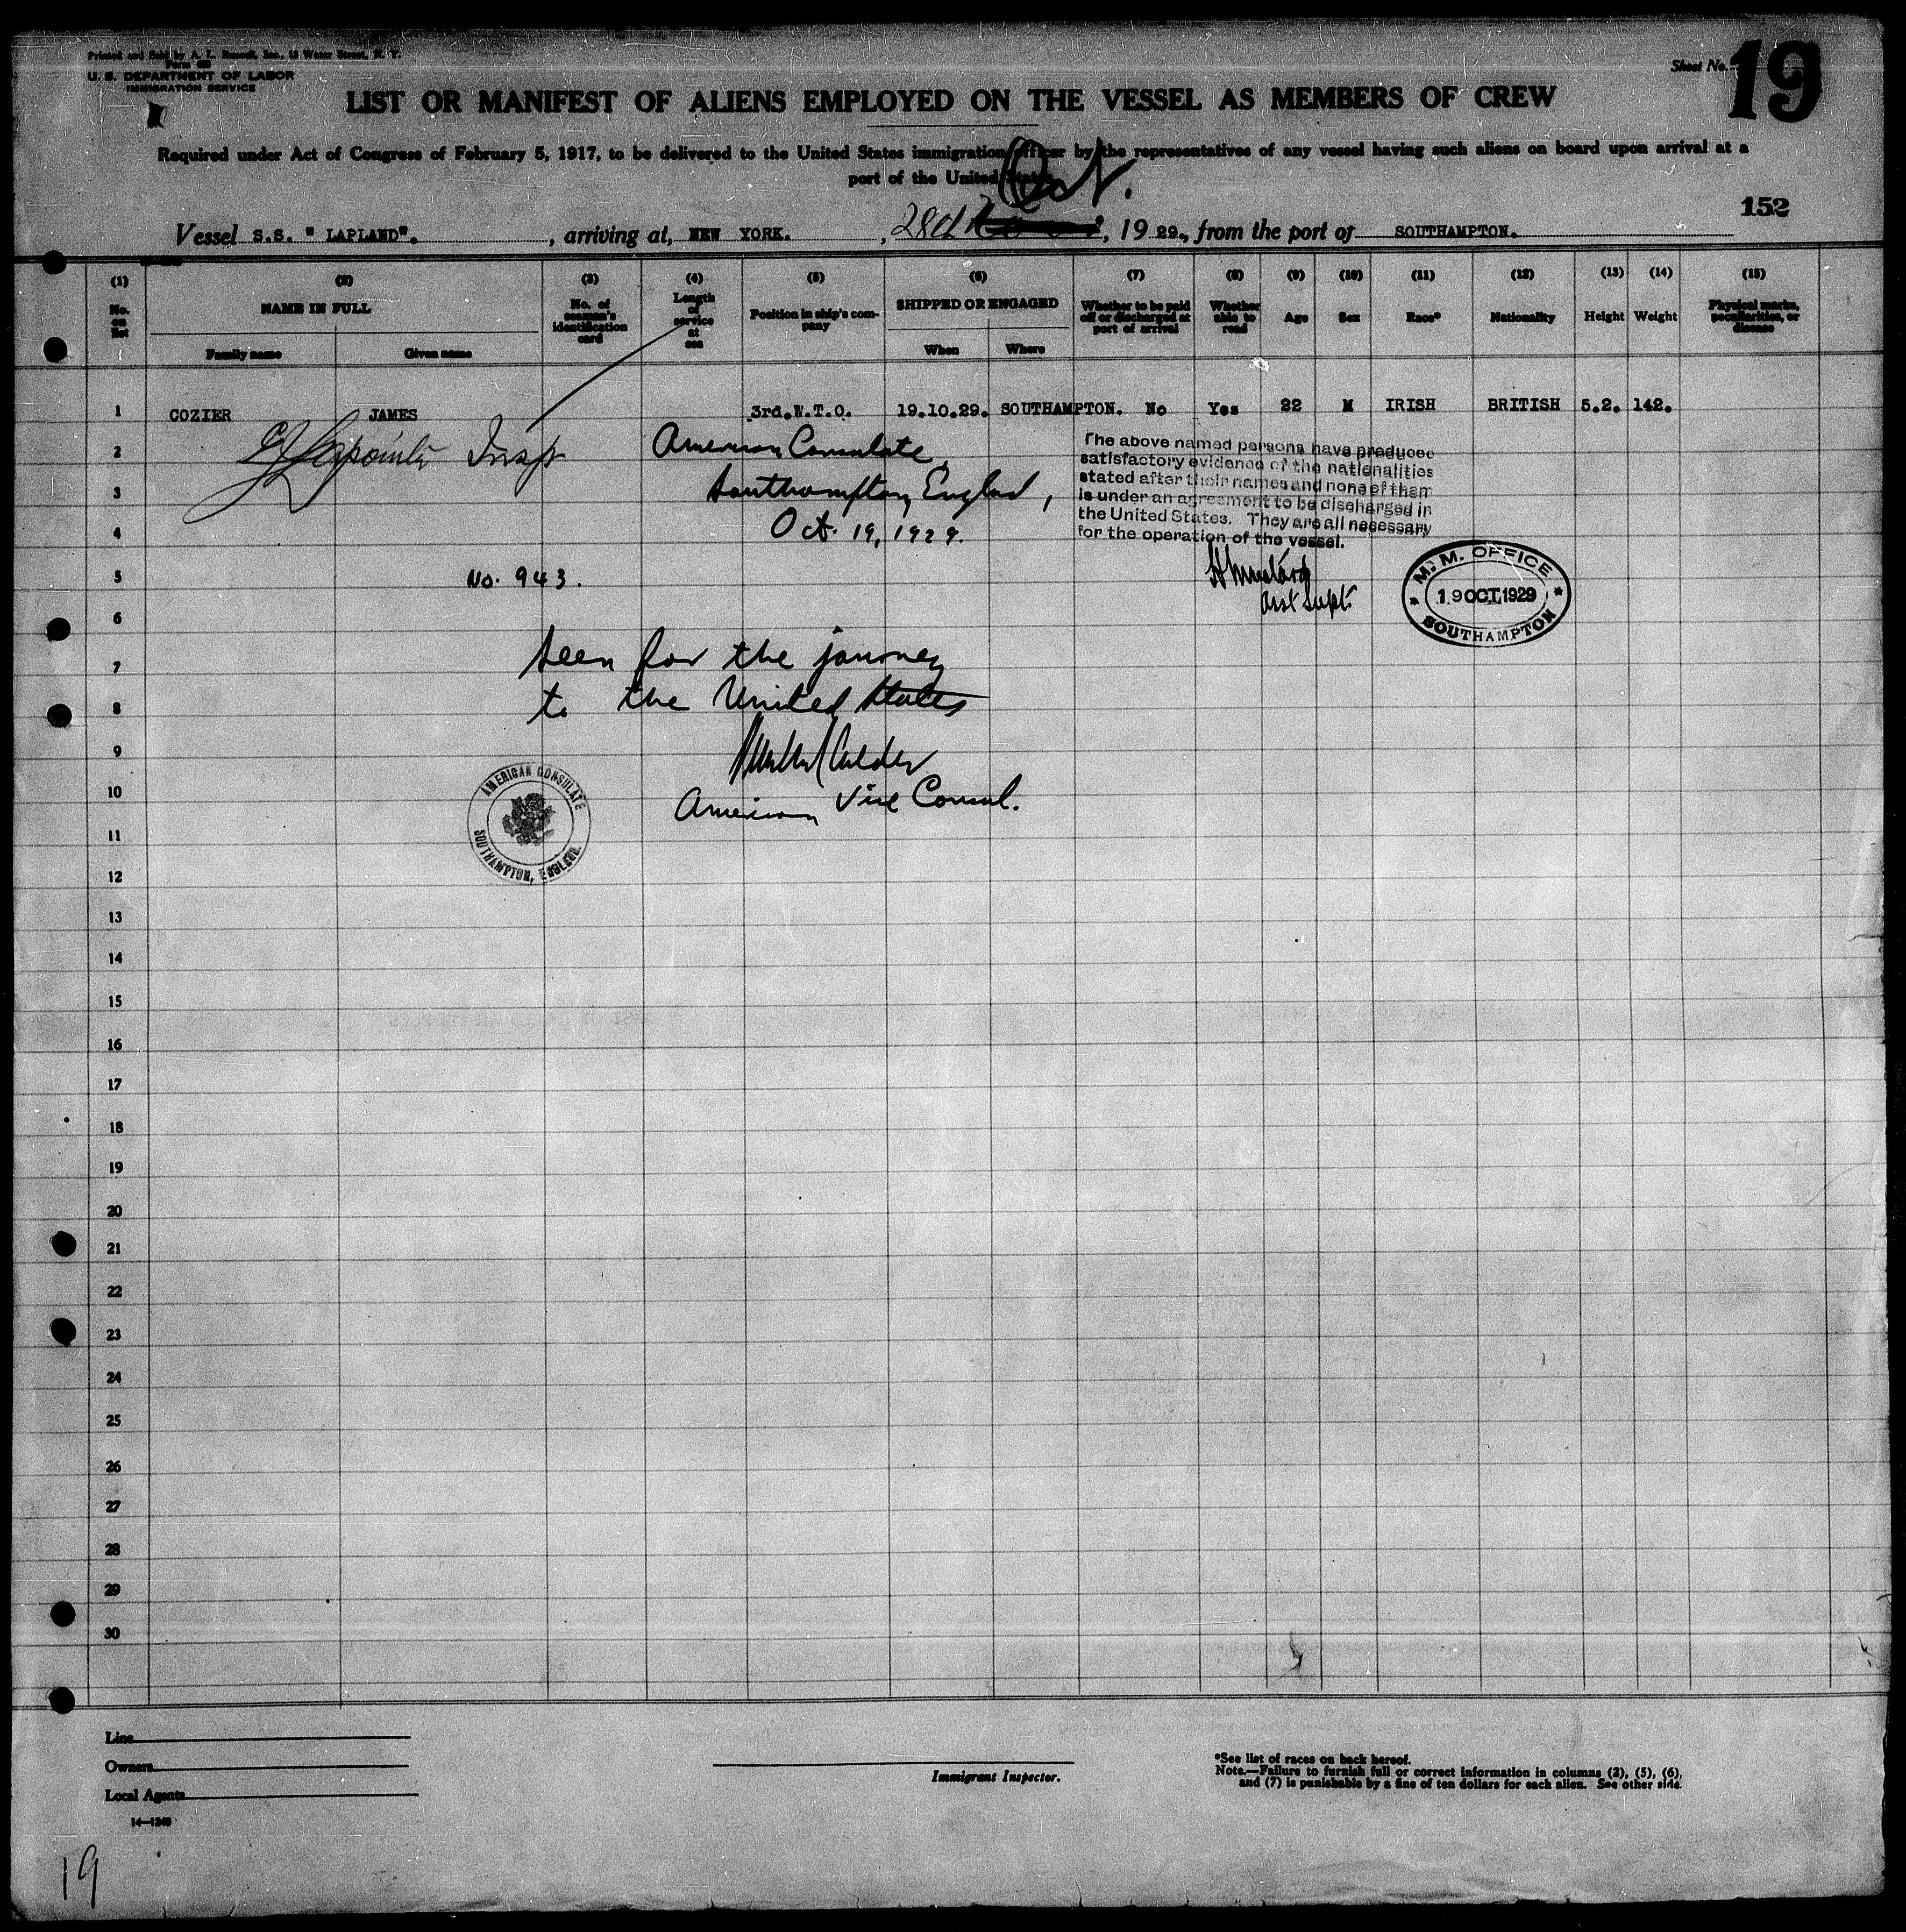 Printed and Sold by A. L. Russell, Inc., 15 Water Street, N. Y.
U. S. DEPARTMENT OF LABOR
IMMIGRATION SERVICE
Sheet No. 19
LIST OR MANIFEST OF ALIENS EMPLOYED ON THE VESSEL AS MEMBERS OF CREW
Required under Act of Congress of February 5, 1917, to be delivered to the United States immigration officer by the representatives of any vessel having such aliens on board upon arrival at a
port of the United States
Oct.
152
Vessel S.S. " LAPLAND". , arriving at, NEW YORK. , 28th , 19 29., from the port of SOUTHAMPTON.
(1) (2) (3) (4) (5) (6) (7) (8) (9) (10) (11) (12) (13) (14) (15)
No. on list NAME IN FULL No. of seaman's identification card Length of service at sea Position in ship's company SHIPPED OR ENGAGED Whether to be paid off or discharged at port of arrival Whether able to read Age Sex Race* Nationality Height Weight Physical marks, peculiarities, or disease
Family name Given name When Where
1 COZIER JAMES 3rd.W.T.O. 19.10.29. SOUTHAMPTON. No Yes 22 M IRISH BRITISH 5.2. 142.
2 Lapointe Insp American Consulate,
3 Southampton, England,
4 Oct. 19, 1929.
The above named persons have produced
satisfactory evidence of the nationalities
stated after their names and none of them
is under an agreement to be discharged in
the United States. They are all necessary
for the operation of the vessel.
Asst Supt.
M. M. OFFICE
19 OCT. 1929
SOUTHAMPTON
5 No. 943.
6
7 Seen for the journey
8 to the United States
9 Calder
10 American Vice Consul.
AMERICAN CONSULATE
SOUTHAMPTON, ENGLAND.
11
12
13
14
15
16
17
18
19
20
21
22
23
24
25
26
27
28
29
30
Line
Owners
Local Agents
14—1240
Immigrant Inspector.
*See list of races on back hereof.
Note.—Failure to furnish full or correct information in columns (2), (5), (6),
and (7) is punishable by a fine of ten dollars for each alien. See other side.
19